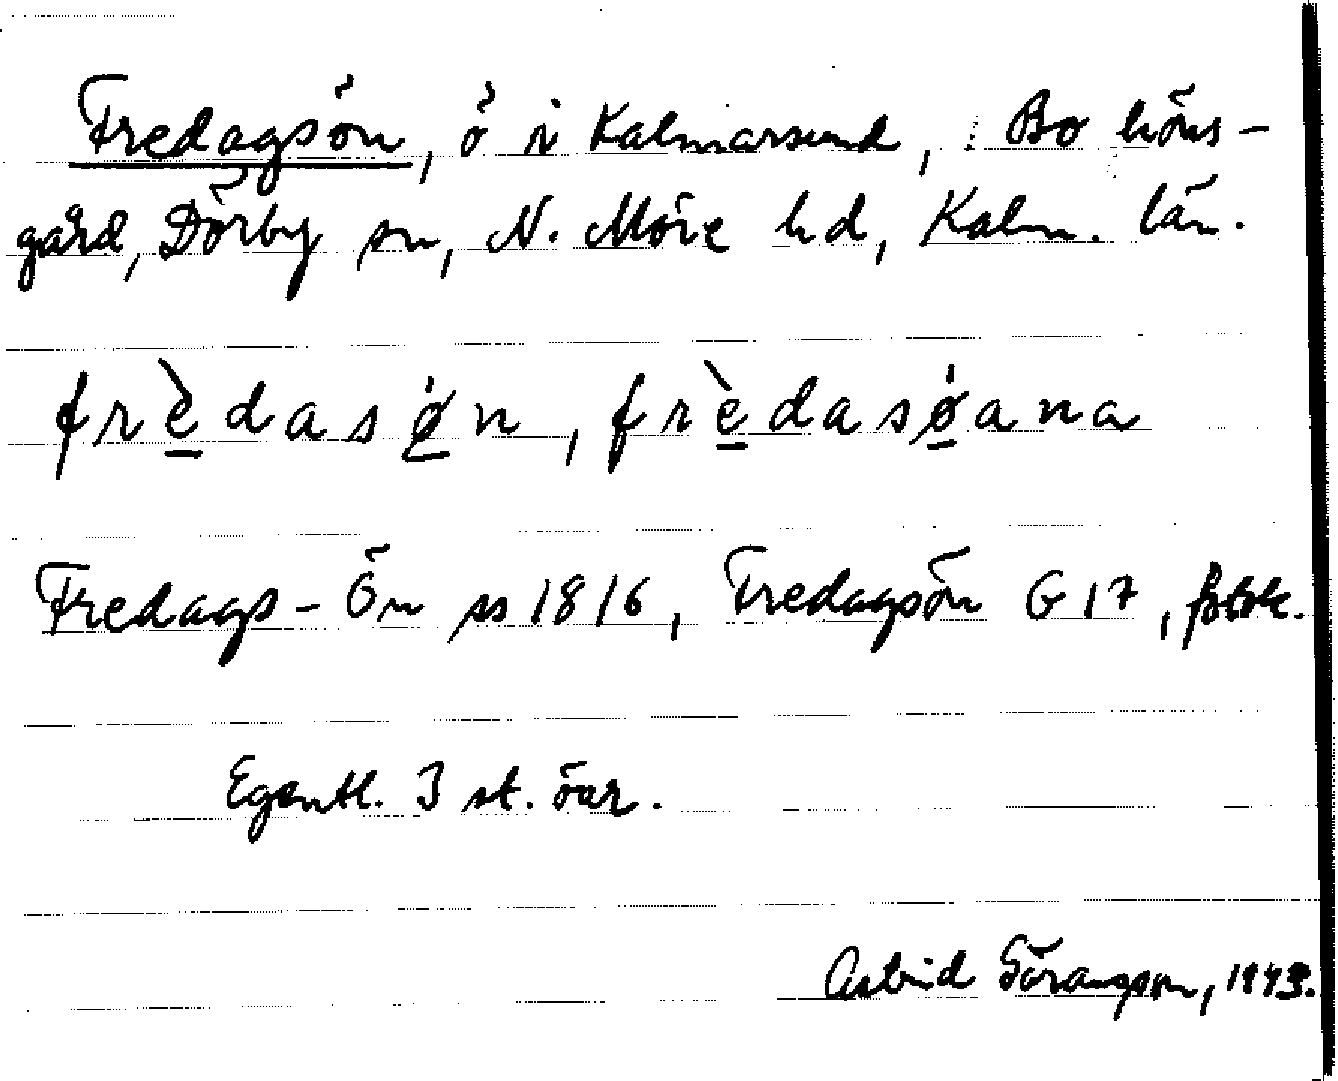 Fredagsön, ö i Kalmarsund, Bo höns-
gård, Dörby sn, N. Möre hd, Kalm. län.
frèdasǿn, frèdasǿana
Fredags-Ön ss 1816, Fredagsön G 17,
Egentl. 3 st. öar.
Astrid Göransson, 1943.